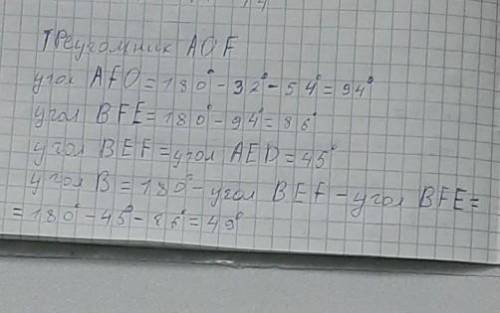 треугольник AOF
угол AFO = 180° - 32° - 54° = 94°
угол BFE = 180° - 94° = 86°
угол BEF = угол AED = 45°
угол B = 180° - угол BEF - угол BFE =
= 180° - 45° - 86° = 49°